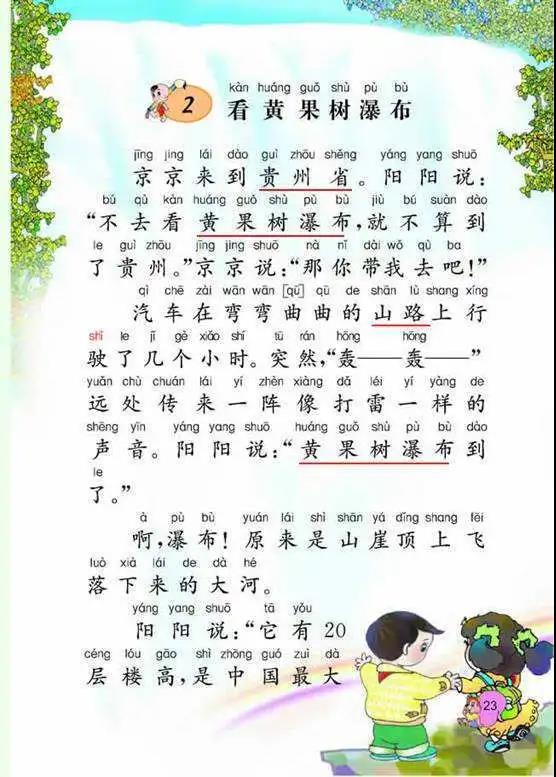 kàn huáng guǒ shù pù bù
2 看黄果树瀑布
jīng jing lái dào guì zhōu shěng yáng yang shuō
京京来到贵州省。阳阳说：
bú qù kàn huáng guǒ shù pù bù jiù bú suàn dào
“不去看黄果树瀑布，就不算到
le guì zhōu jīng jing shuō nà nǐ dài wǒ qù ba
了贵州。”京京说：“那你带我去吧！”
qì chē zài wān wān [qū] qū de shān lù shang xíng
汽车在弯弯曲曲的山路上行
shǐ le jǐ gè xiǎo shí tū rán hōng hōng
驶了几个小时。突然，“轰——轰——”
yuǎn chù chuán lái yí zhèn xiàng dǎ léi yí yàng de
远处传来一阵像打雷一样的
shēng yīn yáng yang shuō huáng guǒ shù pù bù dào
声音。阳阳说：“黄果树瀑布到
le
了。”
à pù bù yuán lái shì shān yá dǐng shang fēi
啊，瀑布！原来是山崖顶上飞
luò xià lái de dà hé
落下来的大河。
yáng yang shuō tā yǒu
阳阳说：“它有20
céng lóu gāo shì zhōng guó zuì dà
层楼高，是中国最大
23